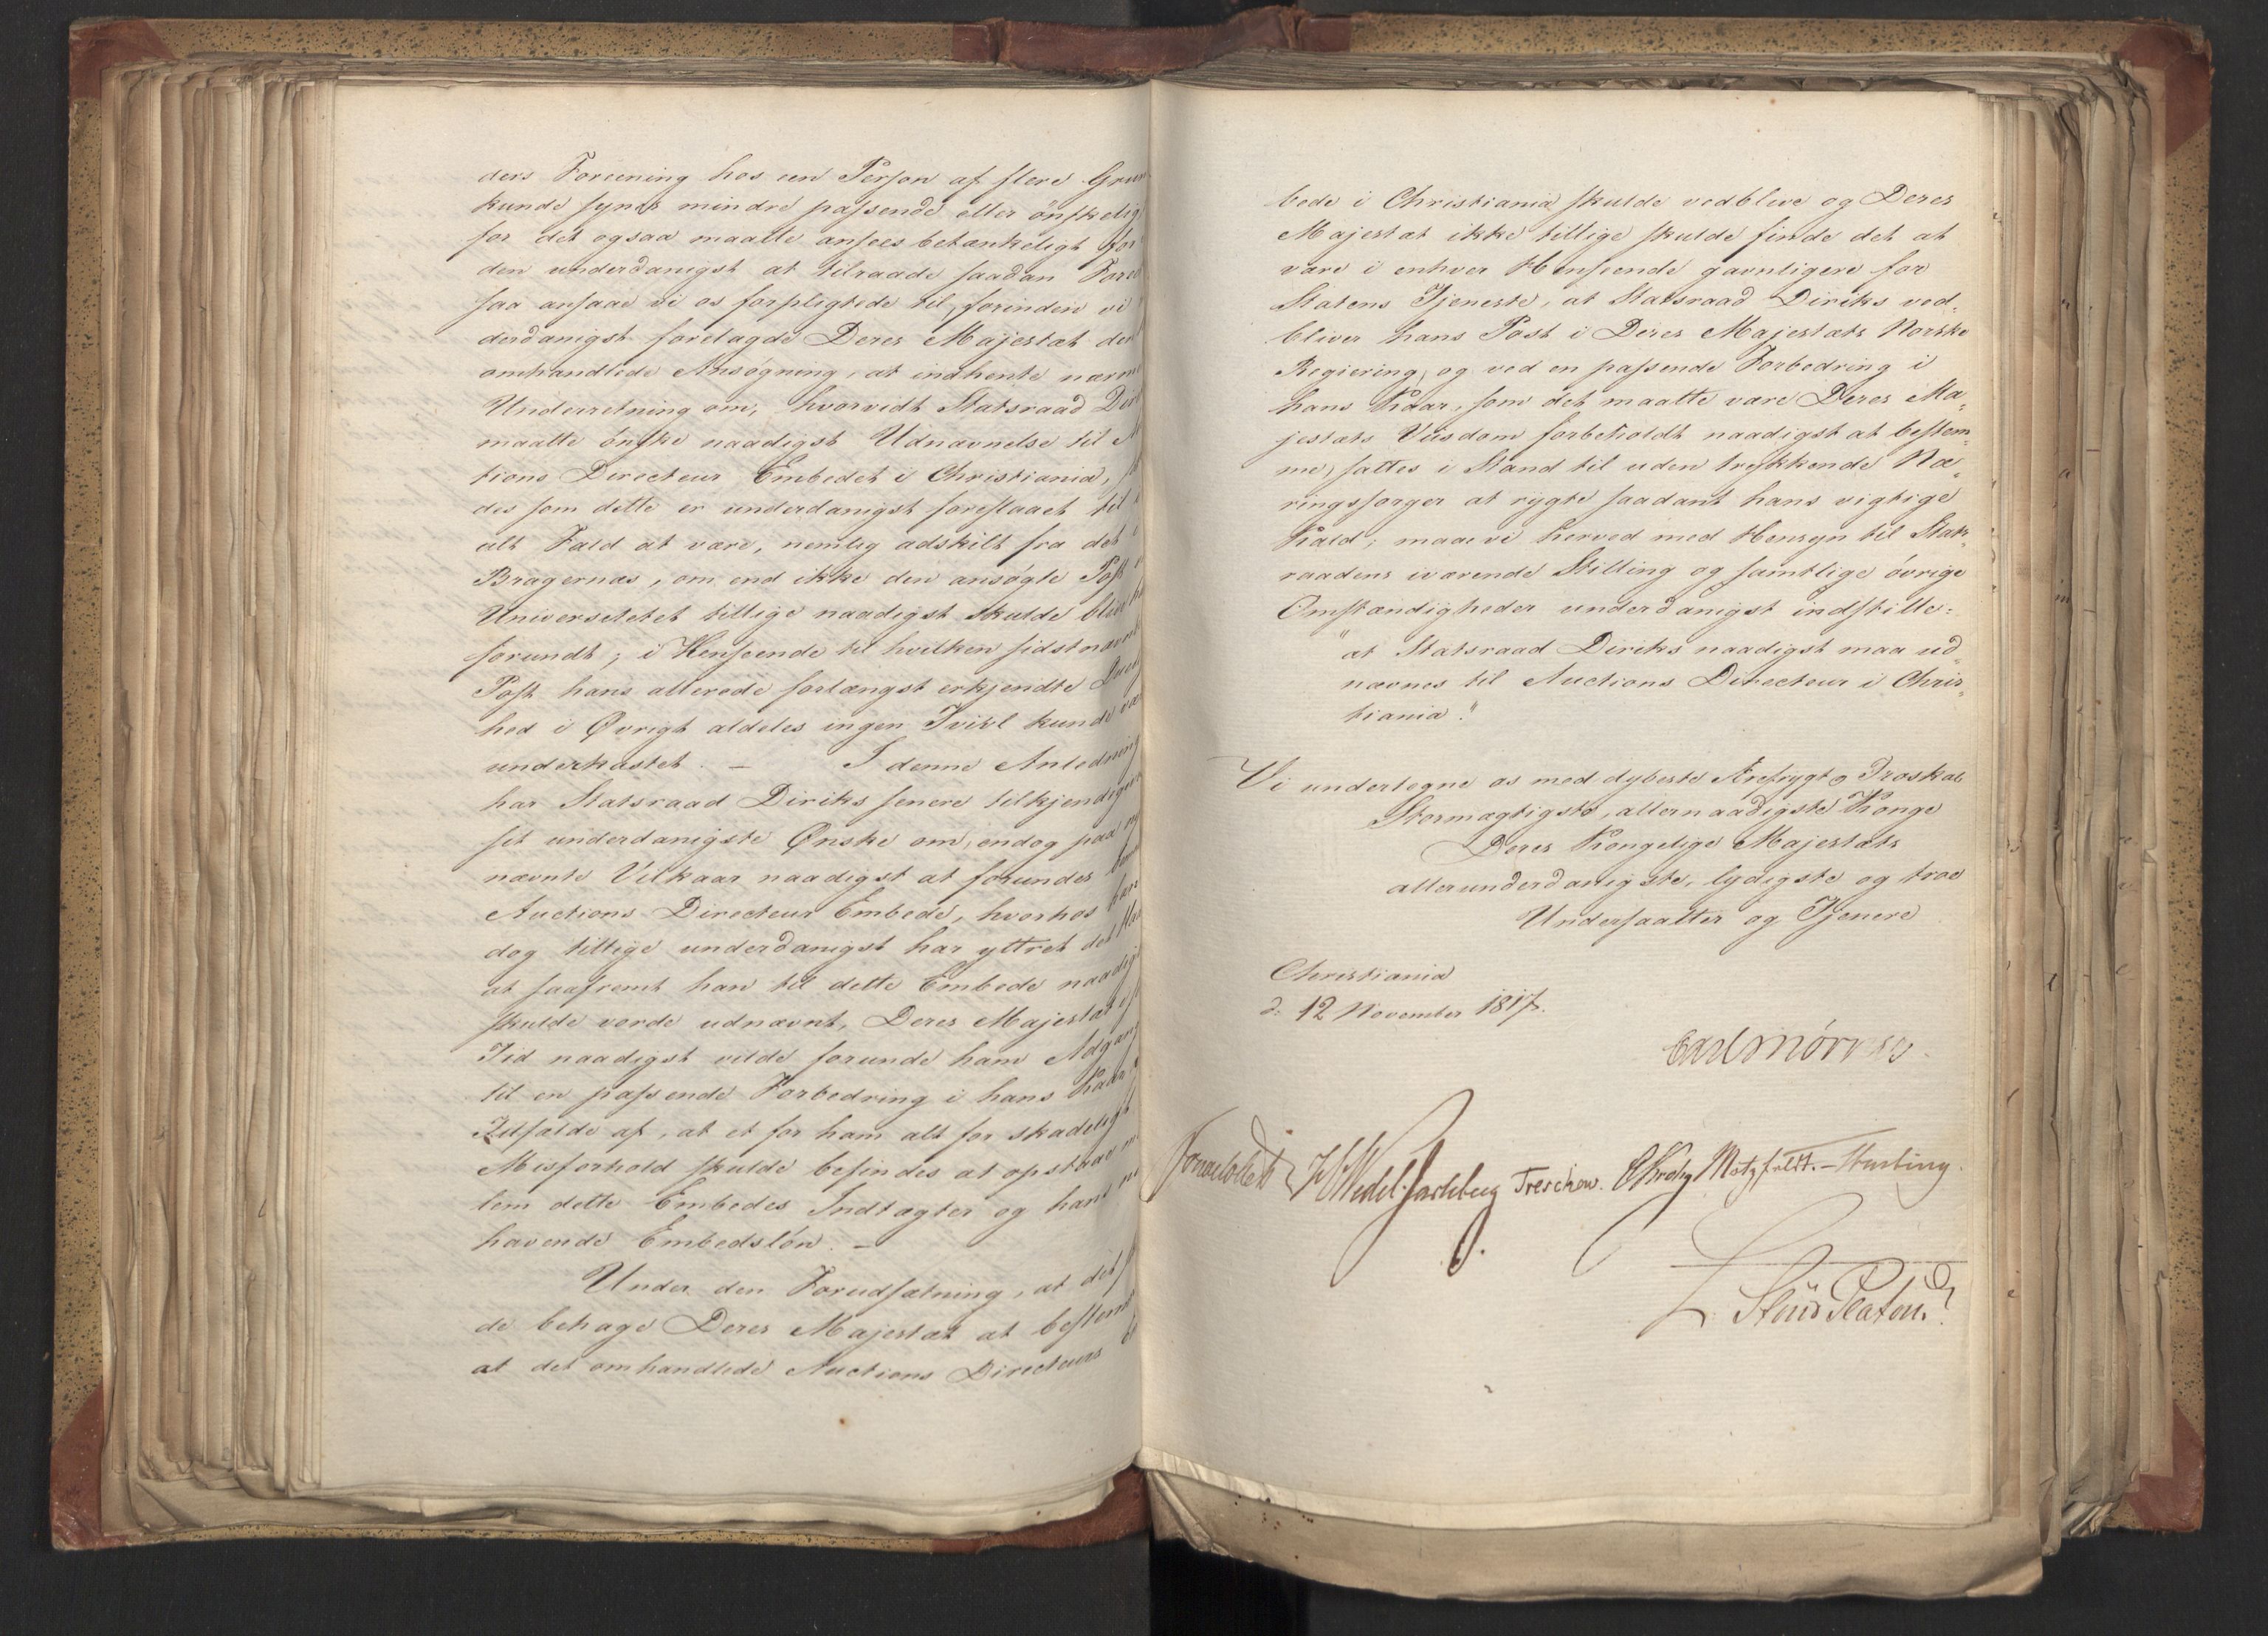 ders Foreening hos een Person af flere Grun
kunde synes mindre passende eller önskelig
for det ogsaa maatte ansees betænkeligt for
den underdanigst at tilraade saadan Foree
saa ansaae vi os forpligtede til, forinden vi
derdanigst forelagde Deres Majestæt den
omhandlede Ansøgning, at indhente nærm
Underretning om, hvorvidt Statsraad Diri
maatte ønske naadigst Udnævnelse til A
tions Directeur Embedet i Christiania,
des som dette er underdanigst foreslaaet til
alt Fald at være, nemlig adskilt fra det
Bragernæs, om end ikke den ansøgte Post
Universitetet tillige naadigst skulde blive
forundt; i Henseende til hvilken sidstnævnte
Post hans allerede forlængst erkjendte Due
hed i Øvrigt aldeles ingen Tvivl kunde væ
underkastet. – I denne Anledning
har Statsraad Diriks senere tilkjendigen
sit underdanigste Ønske om, endog paa
nævnte Vilkaar naadigst at forundes
Auctions-Directeur Embede, hvorhos han
dog tillige underdanigst har yttret det
at saafremt han til dette Embede naadig
skulde vorde udnævnt, Deres Majestæt
Tid naadigst vilde forunde ham Adgang
til en passende Forbedring i hans Kaar
Tilfælde af, at et for ham alt for skadeligt
Misforhold skulde befindes at opstaae
lem dette Embedes Indtægter og hans
havende Embedsløn. –
Under den Forudsætning, at det
de behage Deres Majestæt at bestem
at det omhandlede Auctions Directeurs
bede i Christiania skulde vedblive og Deres
Majestæt ikke tillige skulde finde det at
være i enhver Henseende gavnligere for
Statens Tjeneste, at Statsraad Diriks ved-
bliver hans Post i Deres Majestæts Norske
Regiering, og ved en passende Forbedring i
hans Kaar, som det maatte være Deres Ma-
jestæts Viisdom forbeholdt naadigst at bestem-
me, sættes i Stand til uden trykkende Næ-
ringssorger at rygte saadant hans vigtige
Kald; maae vi herved med Hensyn til Stats-
raadens iværende Stilling og samtlige øvrige
Omstændigheder underdanigst indstille:
"at Statsraad Diriks naadigst maa ud-
nævnes til Auctions Directeur i Chris-
tiania."
Vi undertegne os med dybeste Ærefrygt og Troskab
Stormægtigste, allernaadigste Konge
Deres Kongelige Majestæts
allerunderdanigste, lydigste og troe
Undersaatter og Tjenere
Christiania
d: 12 November 1817.
Carl Mörner.
JHWedel-Jarlsberg Treschow. CKrohg Motzfeldt. – Hersleb